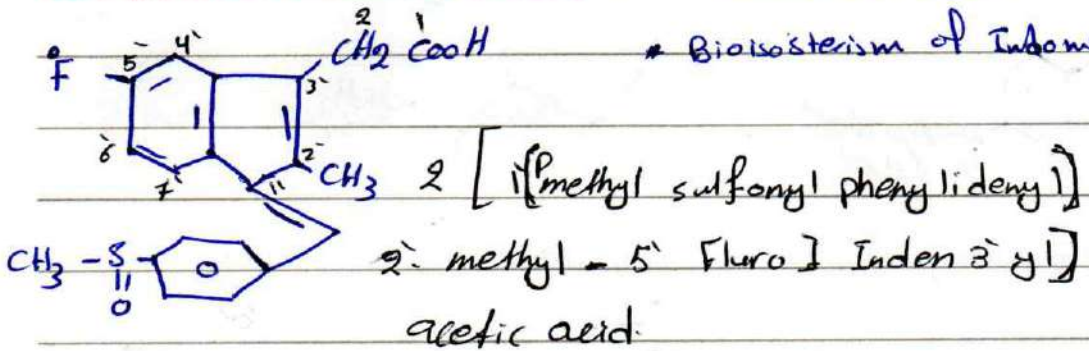 CH2 COOH
2 1
* Bioisosterism of Indom
F 5` 4` 3`
6` 7` 2` 1`
CH3 2 [ 1`[(P methyl sulfonyl phenylidenyl)]
CH3 - S
O
2`- methyl - 5` Fluro ] Inden 3` yl]
acetic acid.